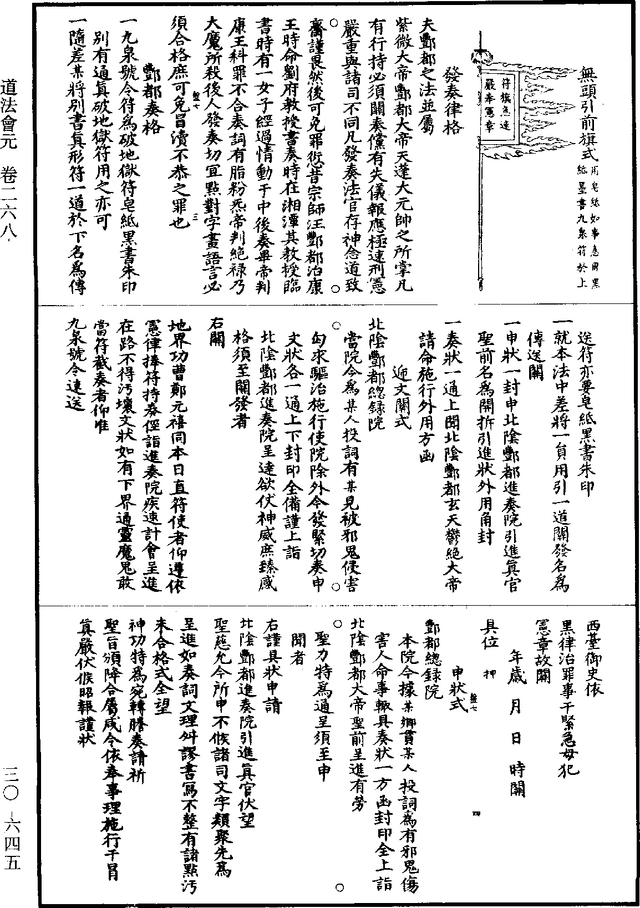 道法會元　卷二六八
三〇―六四五
無頭引前旗式
用皂紙如事急用黑
紙墨書九泉符於上
符旗急速
嚴奉憲章
發奏律格
夫酆都之法並屬
紫微大帝酆都大帝天蓬大元帥之所掌凡
有行持必須關奏儻有失儀報應極速刑憲
嚴重與諸司不同凡發奏法官存神念道致
齋謹畏然後可免罪愆昔宗師汪酆都治康
王時命劉府教授書奏時在湘潭其教授臨
書時有一女子經過情動于中後奏畢帝判
康王科罪不合奏詞有脂粉炁帝判絕祿乃
大魔所殺後人發奏切宜點對字畫語言必
須合格庶可免冒瀆不恭之罪也
酆都奏格
一九泉號令符為破地獄符皂紙黑書朱印
別有通真破地獄符用之亦可
一隨差某將別書真形符一道於下名為傳
送符亦要皂紙黑書朱印
一就本法中差將一員用引一道關發名為
傳送關
一申狀一封申北陰酆都進奏院引進真官
聖前名為開拆引進狀外用角封
一奏狀一通上聞北陰酆都玄天鬱絕大帝
請命施行外用方函
遞文關式
北陰酆都總錄院
當院今為某人投詞有某見被邪鬼侵害
匄求驅治施行使院除外今發緊切奏申
文狀各一通上下封印全備謹上詣
北陰酆都進奏院呈達欲仗神威庶臻感
格須至關發者
右關
地界功曹鄭元禧同本日直符使者仰遵依
憲律捧符持奏徑詣進奏院疾速計會呈進
在路不得污壞文狀如有下界通靈魔鬼敢
當符截奏者仰惟
九泉號令速送
西臺御史依
黑律治罪事干緊急毋犯
憲章故關
年歲　月　日　時關
具位　押
申狀式
酆都總錄院
本院今據某鄉貫某人投詞為有邪鬼傷
害人命事輒具奏狀一方函封印全上詣
北陰酆都大帝聖前呈進有勞
聖力特為通呈須至申
聞者
右謹具狀申請
北陰酆都進奏院引進真官伏望
聖慈允今所申不候諸司文字類聚先為
呈進如奏詞文理舛謬書寫不整有諸點污
未合格式全望
神功特為宛轉謄奏請祈
聖旨頒降合屬咸令依奉事理施行干冒
真嚴伏候昭報謹狀